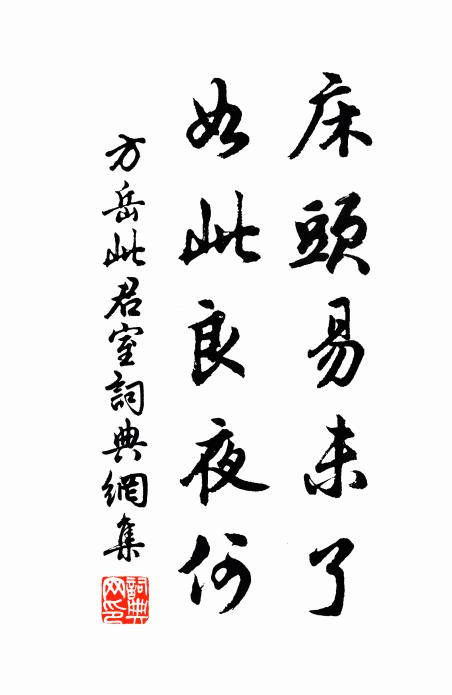 床頭易未了
如此良夜何
方岳此君室詞典網集
詞典
网印